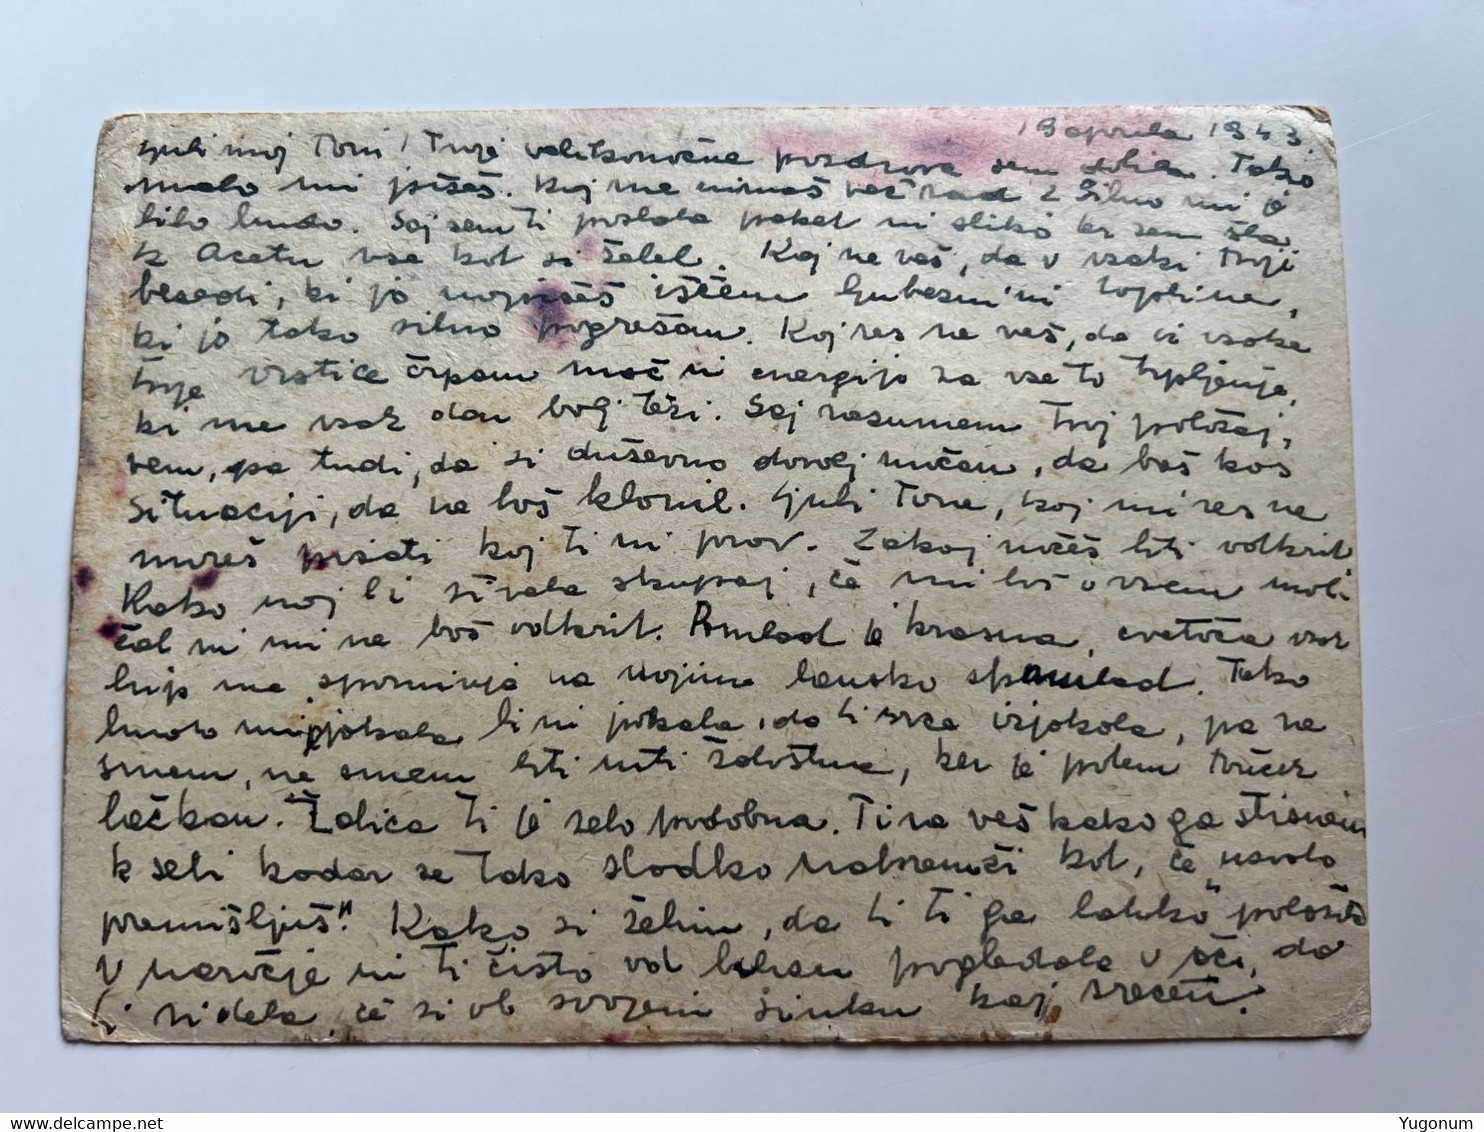 19 aprila 1943.
Ljubi moj Toni! Tvoje velikonočne pozdrave sem dobila. Tako
malo mi pišeš. Kaj me nimaš več rad? Silno mi je
bilo hudo. Saj sem ti poslala paket ni sliko ker sem šla
k Acetu vse kot si želel. Kaj ne veš, da v vsaki tvoji
besedi, ki jo napišeš iščem ljubezni ni topline,
ki jo tako silno pogrešam. Kaj res ne veš, da iz vsake
tvoje vrstice črpam moč ni energijo za vse to trpljenje,
ki me vsak dan bolj teži. Saj razumem tvoj položaj,
vem, pa tudi, da si duševno dovolj močan, da boš kos
situaciji, da ne boš klonil. Ljubi Tone, kaj mi res ne
moreš pisati kaj ti ni prav. Zakaj nočeš biti odkrit
Kako naj bi živela skupaj, če mi boš v vsem mol
čal ni mi ne boš odkrit. Pomlad je krasna, cvetoča vsak
hip me spominja na najino lansko pomlad. Tako
bi ni jokala, da ti srce izjokala, pa ne
smem, ne smem biti niti žalostna, ker je potem Tonček
bočkan. Žalica ti je zelo podobna. Ti ne veš kako ga stisnem
k sebi kadar se tako sladko nasmeji kot, če "resno
premišljuje". Kako si želim, da ti ga lahko položila
v naročje ni ti čisto od blizu pogledala v oči, da
bi videla, če si ob svojem sinku kaj srečen.
Yugonum
delcampe.net